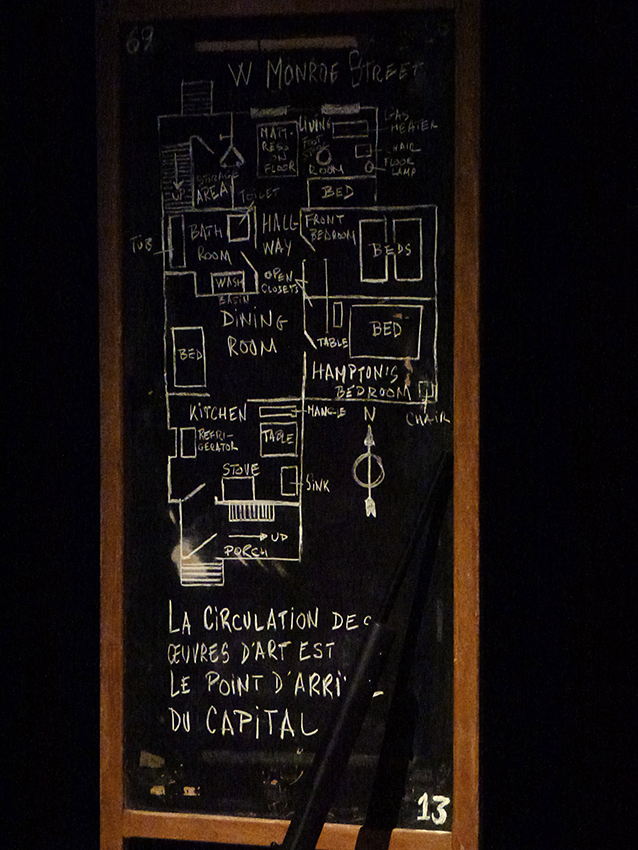 69
W MONROE STREET
MATT-
RESS
ON
FLOOR
LIVING
ROOM
GAS
HEATER
CHAIR
FLOOR
LAMP
UP
STORAGE
AREA
TOILET
BED
TUB
BATH
ROOM
HALL-
WAY
FRONT
BEDROOM
BEDS
WASH
BASIN
OPEN
CLOSETS
DINING
ROOM
BED
TABLE
BED
HAMPTON'S
BEDROOM
CHAIR
KITCHEN
MANGLE
N
REFRI-
GERATOR
TABLE
STOVE
SINK
UP
PORCH
LA CIRCULATION DES
ŒUVRES D'ART EST
LE POINT D'ARRI
DU CAPITAL
13